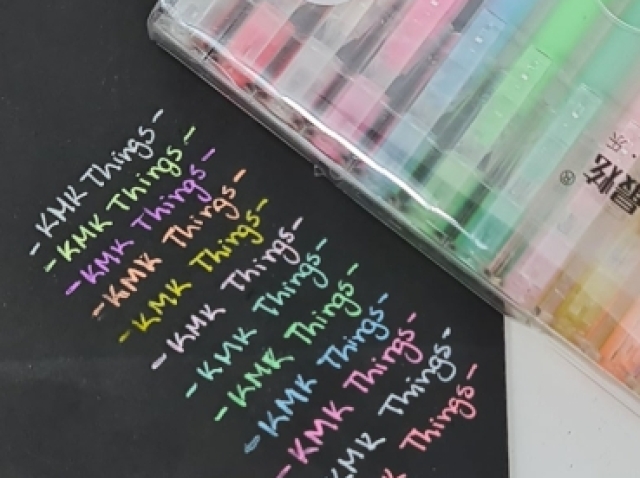 - KMK Things -
- KMK Things -
- KMK Things -
- KMK Things -
- KMK Things -
- KMK Things -
- KMK Things -
- KMK Things -
- KMK Things -
- KMK Things -
KMK Things -
Things -
炫®
乐